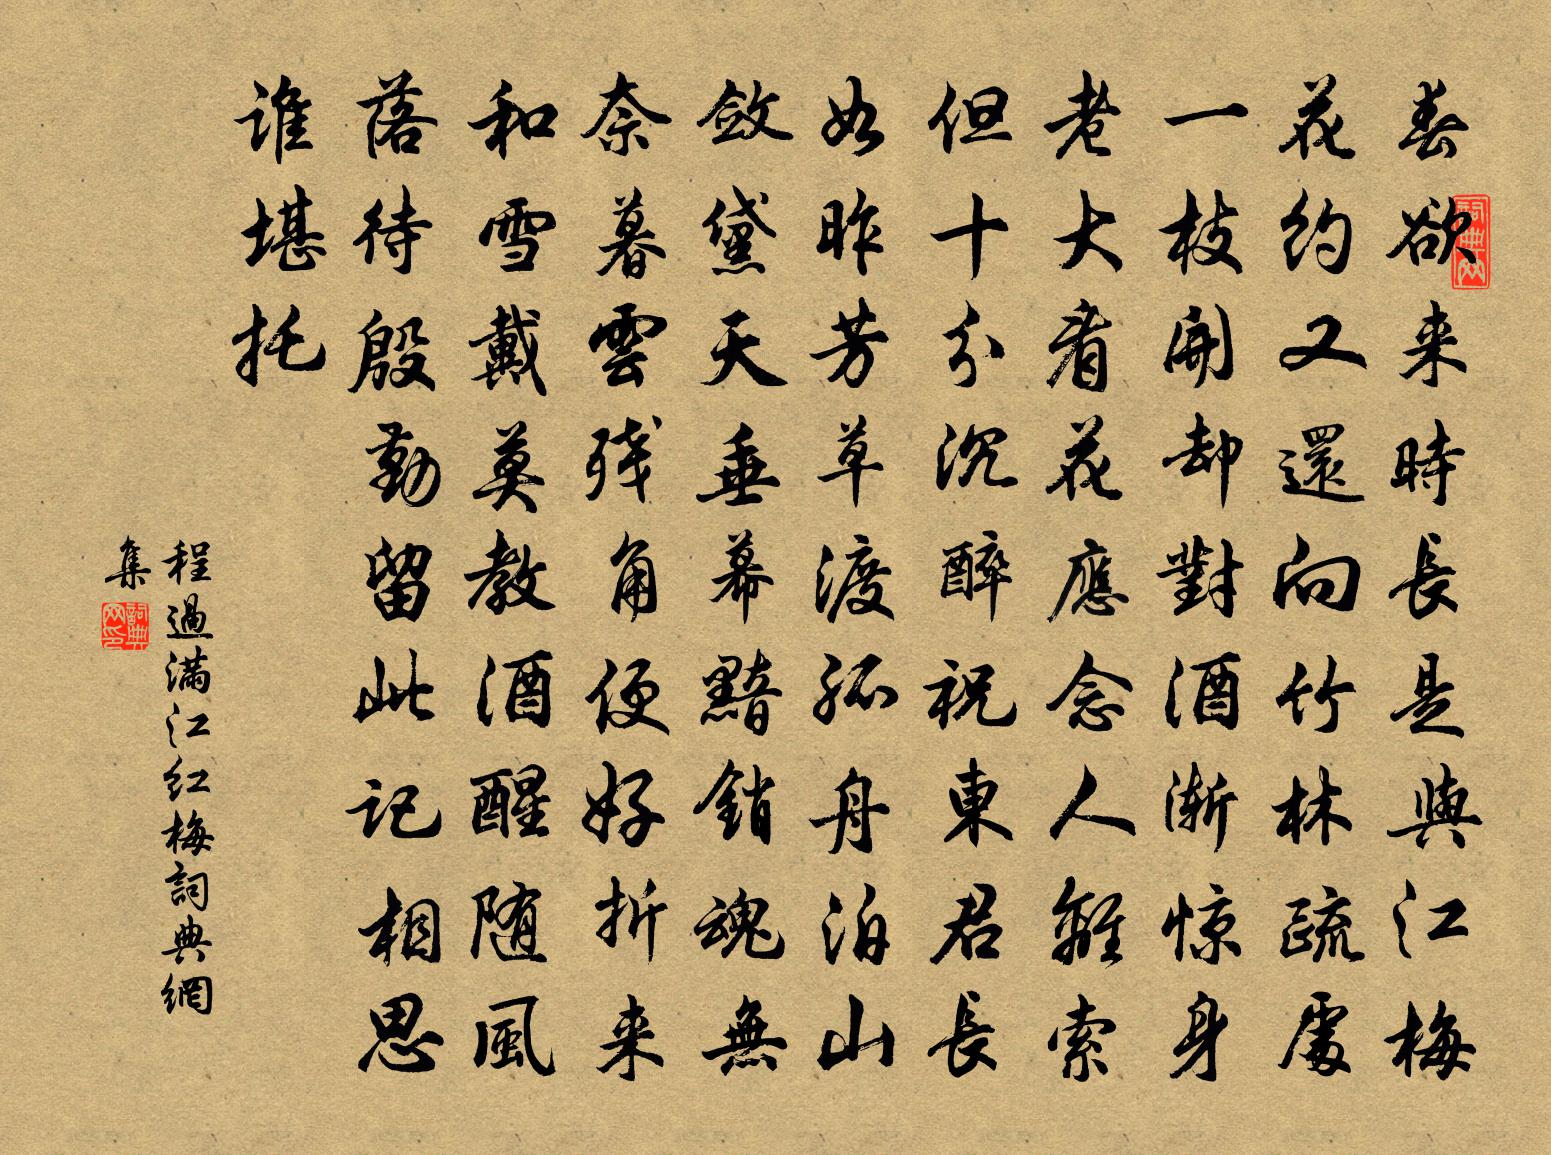 春欲来時長是與江梅
花約又還向竹林疏處
一枝開却對酒渐惊身
老大看花應念人離索
但十分沉醉祝東君長
如昨芳草渡孤舟泊山
斂黛天垂幕黯銷魂無
奈暮雲残角便好折来
和雪戴莫教酒醒随風
落待殷勤留此記相思
谁堪托
程過滿江红梅詞典網
集